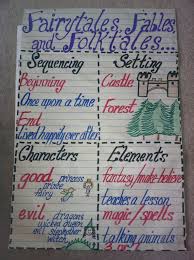 Fairytales, Fables,
and Folktales...
Sequencing
Beginning
Once upon a time
End
Lived happily ever after
Setting
Castle
Forest
Characters
good
princess
prince
fairy
evil
dragons
wicked queen
stepmother
witch
Elements
fantasy/make-believe
teaches a lesson
magic/spells
talking animals